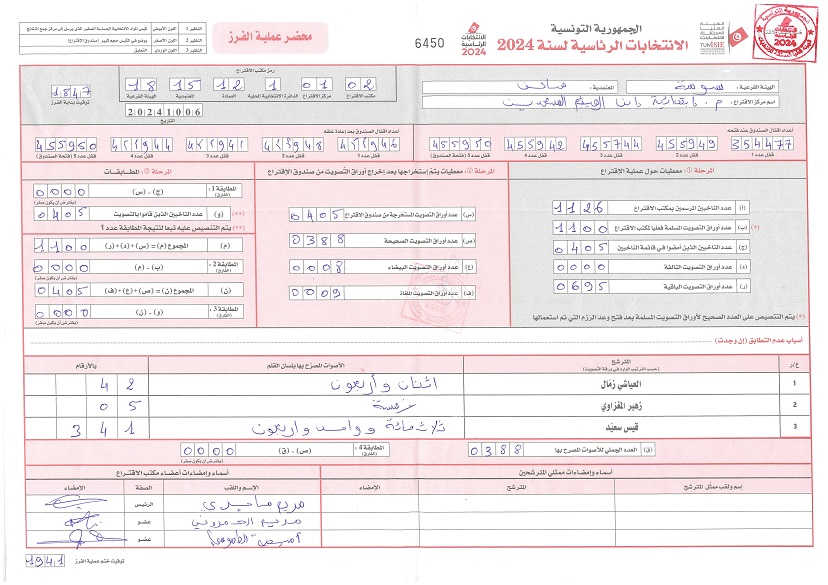 الجمهورية التونسية
الانتخابات الرئاسية لسنة 2024
الانتخابات الرئاسية 2024
6450
محضر عملية الفرز
النظير 1 اللون الأبيض
النظير 2 اللون الأصفر
النظير 3 اللون الوردي التعليق
الهيئة الفرعية: سوسة المعتمدية:
اسم مركز الاقتراع:
رمز مكتب الاقتراع
18 15 12 1 01 02
الهيئة الفرعية المعتمدية العمادة الدائرة الانتخابية المحلية مركز الاقتراع مكتب الاقتراع
1847
توقيت بداية الفرز
20241006
التاريخ
أعداد أقفال الصندوق عند فتحه
354477 455949 455744 455942 455950
قفل عدد 1 قفل عدد 2 قفل عدد 3 قفل عدد 4 قفل عدد 5 (فتحة الصندوق)
أعداد أقفال الصندوق بعد إعادة غلقه
455950
قفل عدد 1 قفل عدد 2 قفل عدد 3 قفل عدد 4 قفل عدد 5 (فتحة الصندوق)
المرحلة 1: معطيات حول عملية الاقتراع
(أ) عدد الناخبين المرسمين بمكتب الاقتراع 1126
(ب) عدد أوراق التصويت المسلمة فعليا لمكتب الاقتراع 1100 (*)
(ج) عدد الناخبين الذين أمضوا في قائمة الناخبين 0405
(د) عدد أوراق التصويت التالفة 0000
(ر) عدد أوراق التصويت الباقية 0695
(*) يتم التنصيص على العدد الصحيح لأوراق التصويت المسلمة بعد فتح وعد الرزم التي تم استعمالها
المرحلة 2: معطيات يتم استخراجها بعد إخراج أوراق التصويت من صندوق الاقتراع
(س) عدد أوراق التصويت المستخرجة من صندوق الاقتراع 0405
(ص) عدد أوراق التصويت الصحيحة 0388
(ع) عدد أوراق التصويت البيضاء 0008
(ف) عدد أوراق التصويت الملغاة 0009
المرحلة 3: المطابقات
المطابقة 1: (الفارق) (ج) - (س) 0000
(يفترض أن يكون صفر)
(**) (و) عدد الناخبين الذين قاموا بالتصويت 0405
(**) يتم التنصيص عليه تبعا لنتيجة المطابقة عدد 1
(م) المجموع (م) = (س) + (د) + (ر) 1100
المطابقة 2: (الفارق) (ب) - (م) 0000
(يفترض أن يكون صفر)
(ن) المجموع (ن) = (ص) + (ع) + (ف) 0405
المطابقة 3: (الفارق) (و) - (ن) 0000
(يفترض أن يكون صفر)
أسباب عدم التطابق (إن وجدت)
ع/ر المترشح الأصوات المصرح بها بلسان القلم بالأرقام
(حسب الترتيب الوارد في ورقة التصويت)
1 العياشي زمّال اثنان وأربعون 42
2 زهير المغزاوي خمسة 05
3 قيس سعيّد ثلاثمائة وواحد وأربعون 341
(ق) العدد الجملي للأصوات المصرح بها 0388
المطابقة 4: (الفارق) (ص) - (ق) 0000
(يفترض أن يكون صفر)
أسماء وإمضاءات ممثلي المترشحين
اسم ولقب ممثل المترشح المترشح الإمضاء
أسماء وإمضاءات أعضاء مكتب الاقتراع
الاسم واللقب الصفة الإمضاء
الرئيس
عضو
عضو
توقيت ختم عملية الفرز 1941